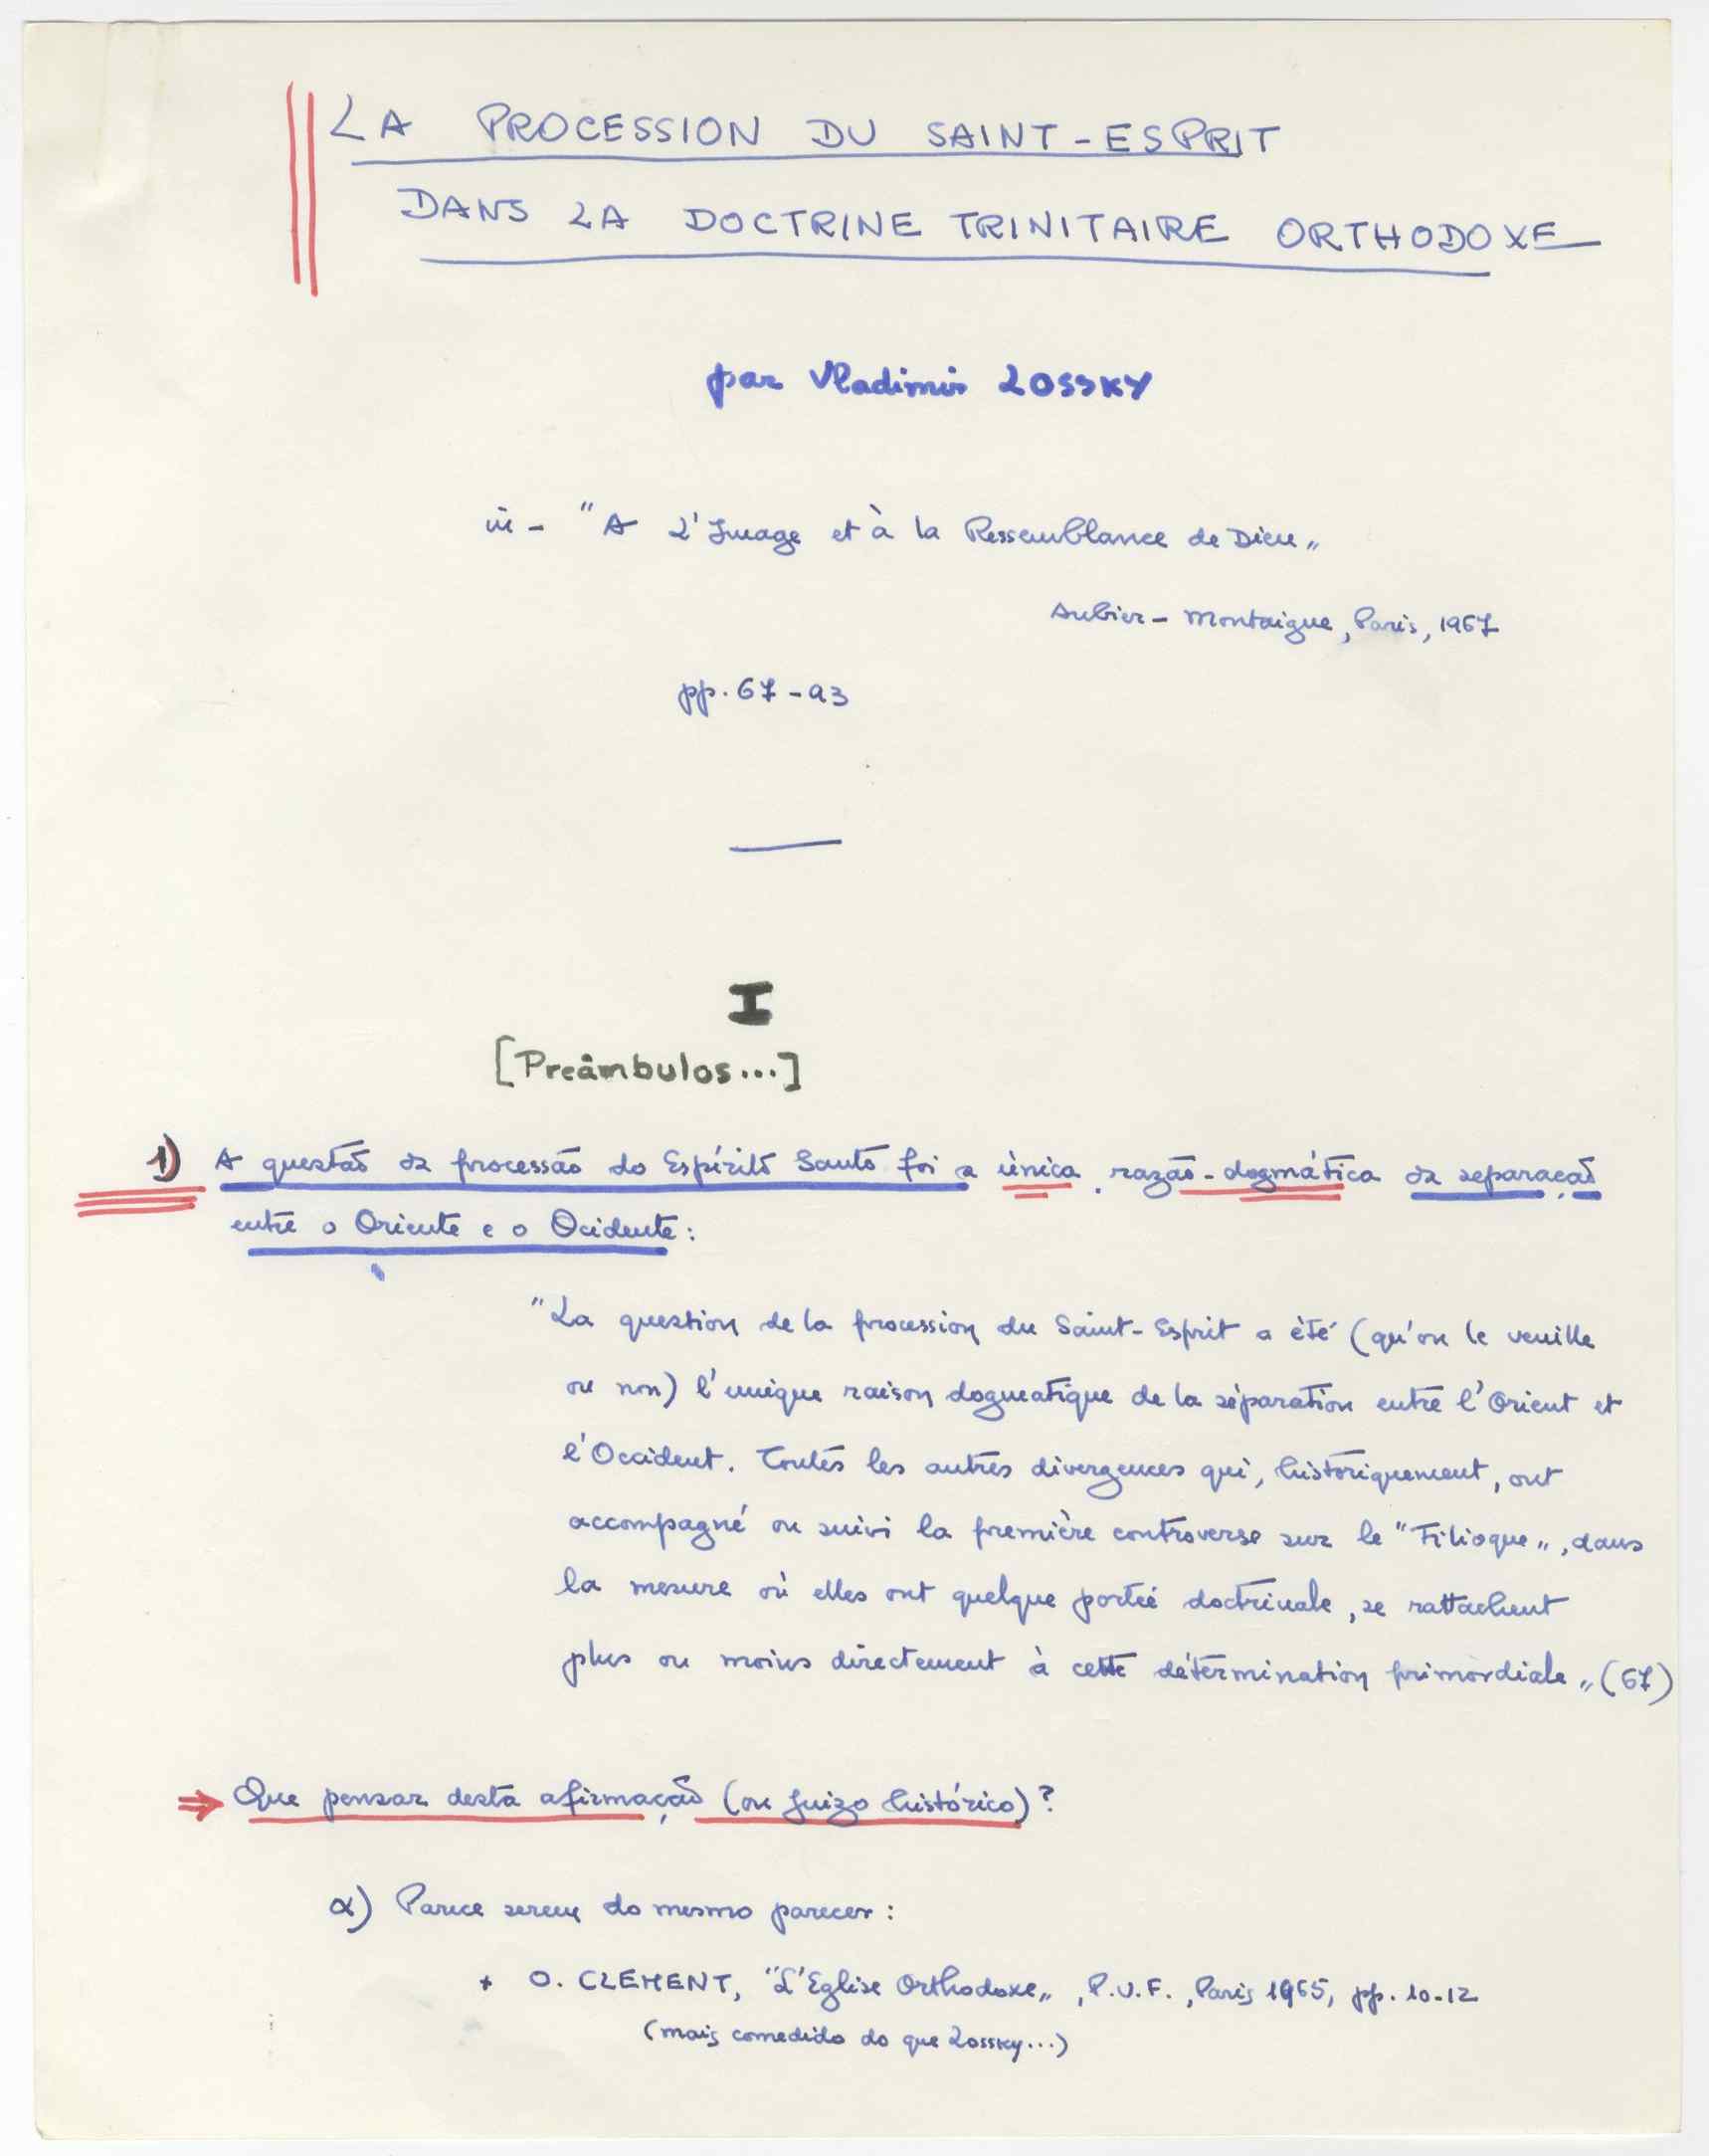 LA PROCESSION DU SAINT-ESPRIT
DANS LA DOCTRINE TRINITAIRE ORTHODOXE
par Vladimir LOSSKY
in - "A L'Image et à la Ressemblance de Dieu"
Aubier - Montaigne, Paris, 1967
pp. 67 - 93
I
[Preâmbulos...]
1) A questão da processão do Espírito Santo foi a única razão-dogmática da separação
entre o Oriente e o Ocidente:
"La question de la procession du Saint-Esprit a été (qu'on le veuille
ou non) l'unique raison dogmatique de la séparation entre l'Orient et
l'Occident. Toutes les autres divergences qui, historiquement, ont
accompagné ou suivi la première controverse sur le "Filioque", dans
la mesure où elles ont quelque portée doctrinale, se rattachent
plus ou moins directement à cette détermination primordiale" (67)
⇒ Que pensar desta afirmação (ou juizo histórico)?
α) Parece serem do mesmo parecer:
+ O. CLEMENT, "L'Eglise Orthodoxe", P.U.F., Paris 1965, pp. 10-12
(mais comedido do que Lossky...)